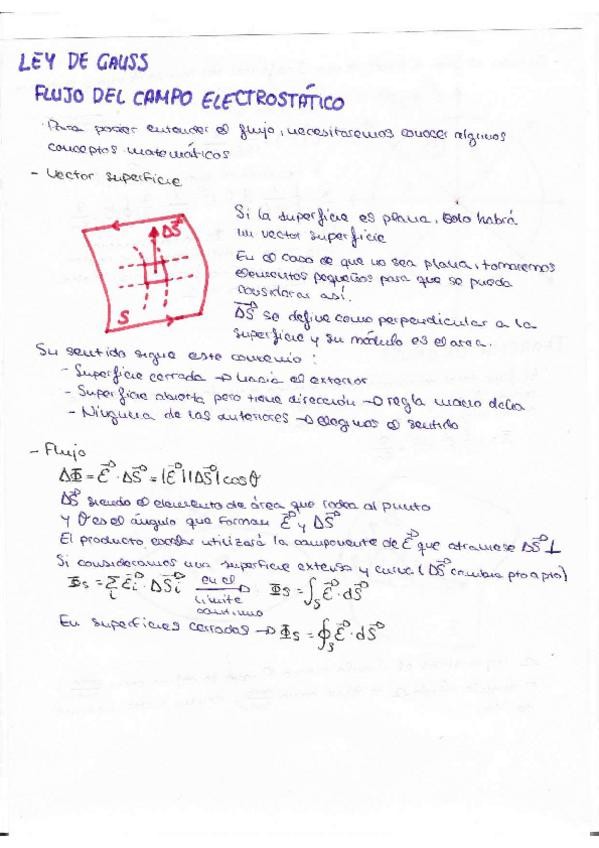 LEY DE GAUSS
FLUJO DEL CAMPO ELECTROSTÁTICO
Para poder entender el flujo, necesitaremos conocer algunos
conceptos matemáticos
- Vector superficie
Si la superficie es plana, solo habrá
un vector superficie
En el caso de que no sea plana, tomaremos
elementos pequeños para que se pueda
considerar así.
ΔS⃗ se define como perpendicular a la
superficie y su módulo es el area.
ΔS⃗
S
Su sentido sigue este convenio:
- Superficie cerrada → hacia el exterior
- Superficie abierta pero tiene dirección → regla mano dcha
- Ninguna de las anteriores → elegimos el sentido
- Flujo
ΔΦ = E⃗ · ΔS⃗ = |E⃗||ΔS⃗| cos θ
ΔS⃗ siendo el elemento de área que rodea al punto
y θ es el ángulo que forman E⃗ y ΔS⃗
El producto escalar utilizará la componente de E⃗ que atraviese ΔS⃗ ⊥
Si consideramos una superficie extensa y curva (ΔS⃗ cambia pto a pto)
Φs = Σi E⃗i · ΔS⃗i en el límite continuo → Φs = ∫s E⃗ · dS⃗
En superficies cerradas → Φs = ∮s E⃗ · dS⃗